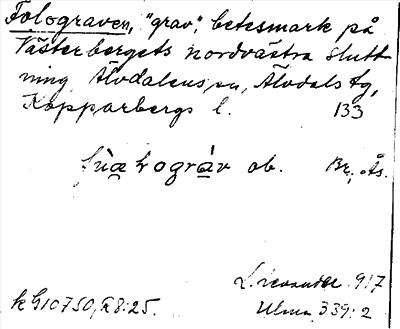 Fologräven, "grav", betesmark på
Västerbergets nordvästra slutt-
ning Älvdalens sn, Älvdals tg,
Kopparbergs l. 133
ob. Br., Ås.
L. Levander 917
k G10750, R8:25. Ulma 339:2